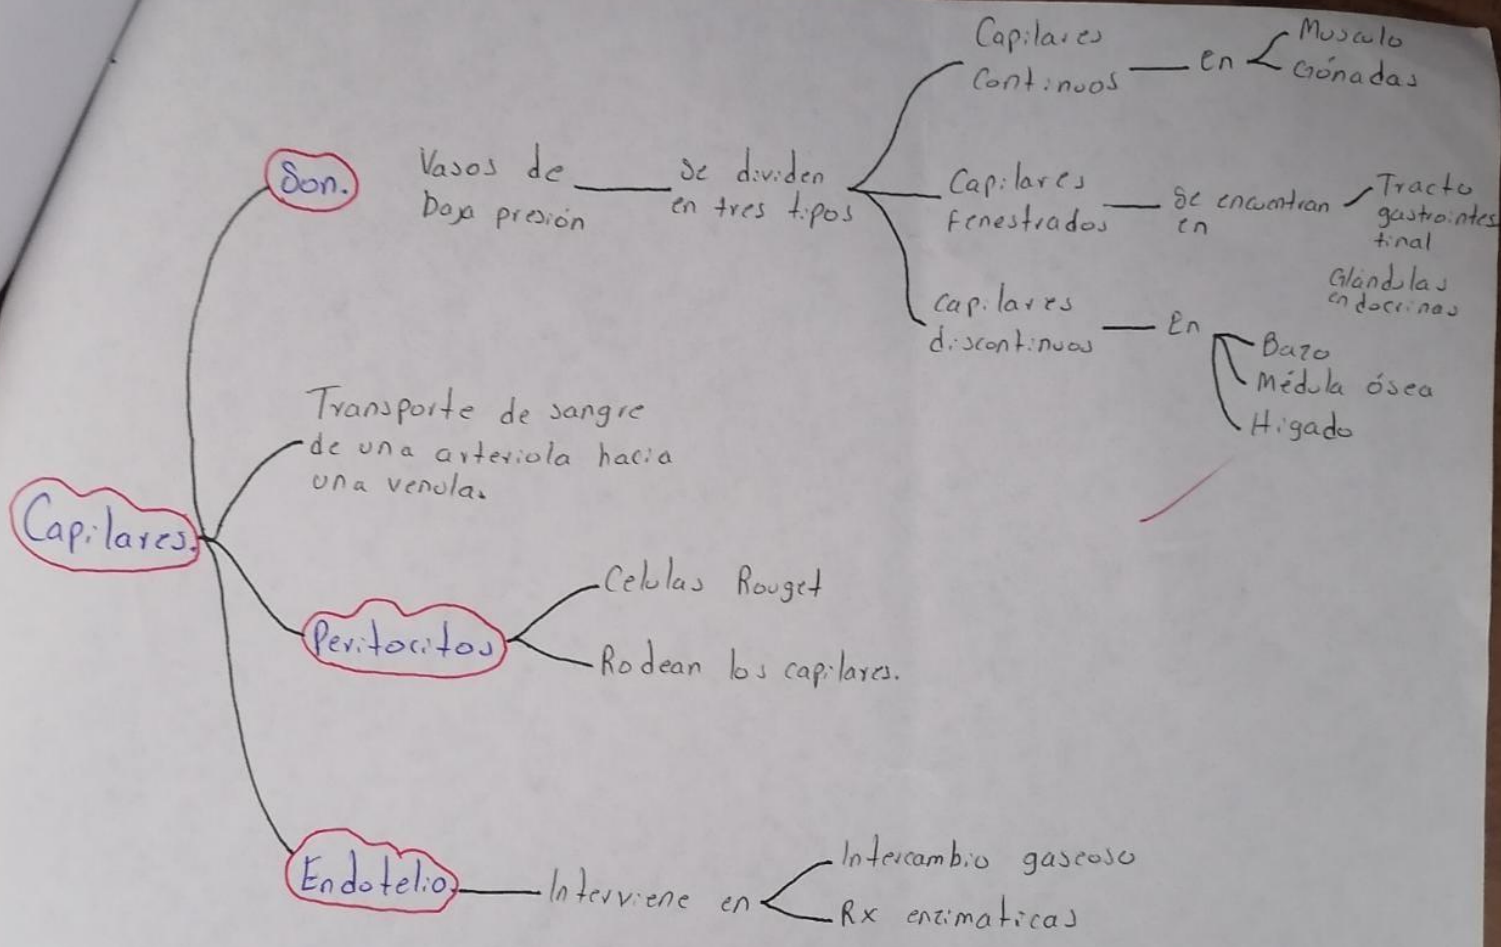 Capilares
Continuos
en
Musculo
Gónadas
Son.
Vasos de
baja presión
se dividen
en tres tipos
Capilares
Fenestrados
se encuentran
en
Tracto
gastrointes
tinal
Glándulas
endocrinas
Capilares
discontinuos
En
Bazo
Médula ósea
Higado
Transporte de sangre
de una arteriola hacia
una venula.
Capilares.
Peritocitos
Celulas Rouget
Rodean los capilares.
Endotelio
Interviene en
Intercambio gaseoso
Rx enzimaticas